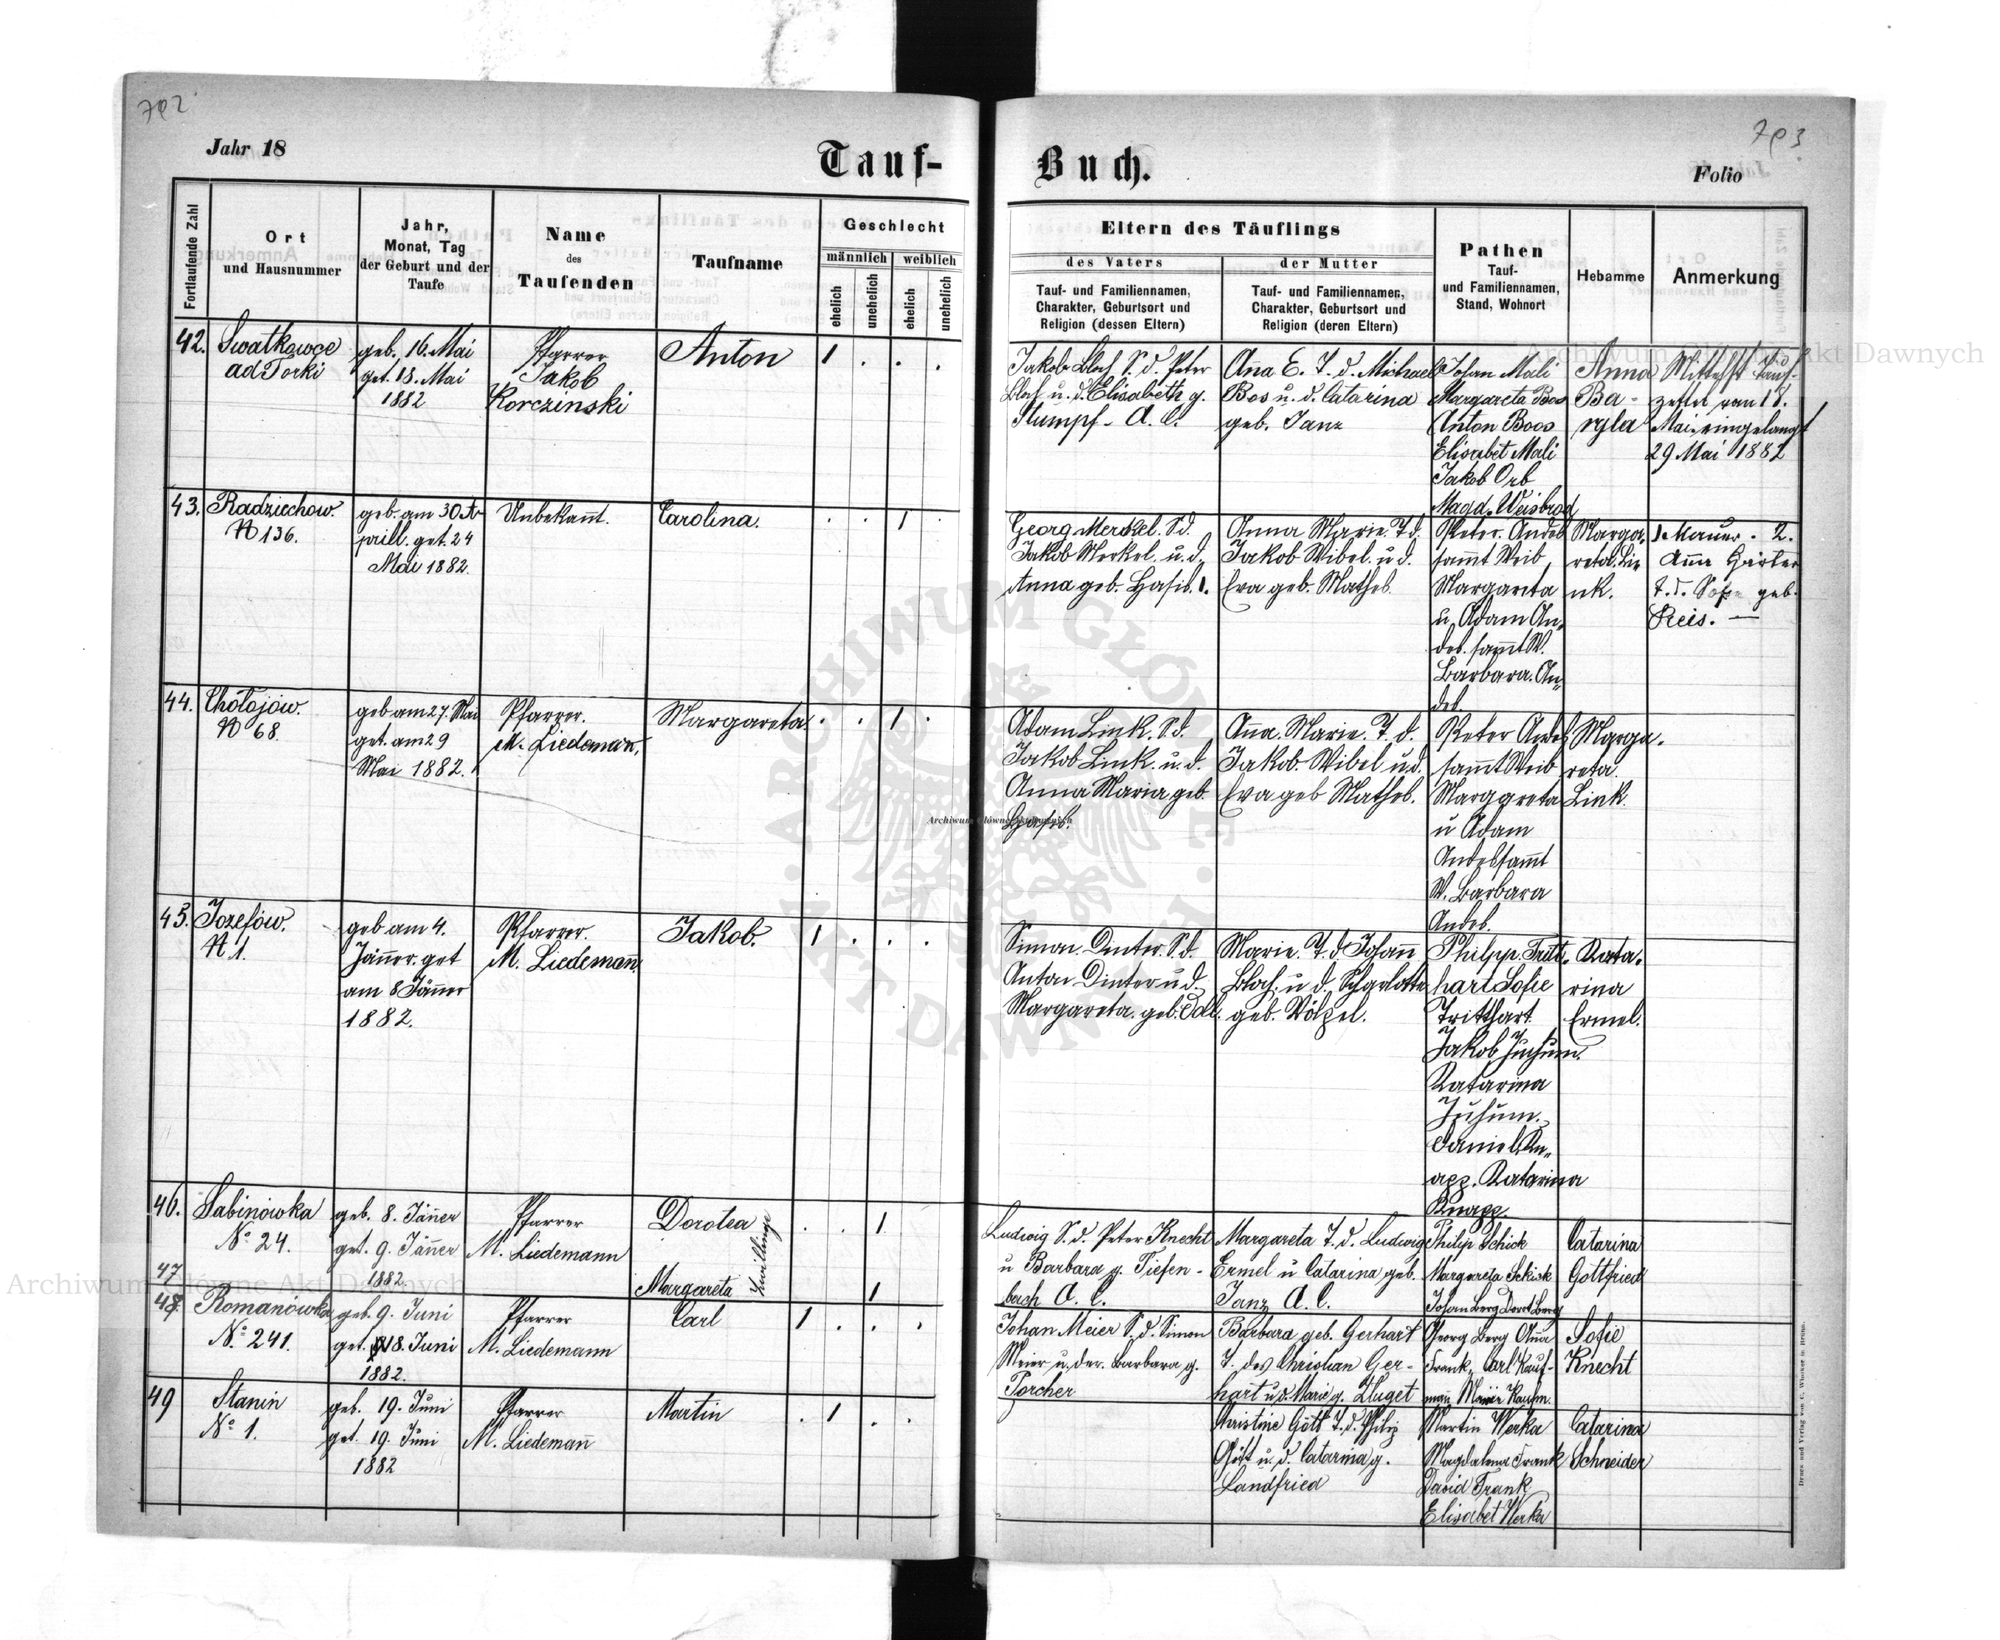 792
793
Jahr 18
Tauf-
Buch.
Folio
Fortlaufende Zahl
Ort
und Hausnummer
Jahr,
Monat, Tag
der Geburt und der
Taufe
Name
des
Taufenden
Taufname
Geschlecht
männlich
weiblich
ehelich
unehelich
ehelich
unehelich
Eltern des Täuflings
des Vaters
der Mutter
Tauf- und Familiennamen,
Charakter, Geburtsort und
Religion (dessen Eltern)
Tauf- und Familiennamen,
Charakter, Geburtsort und
Religion (deren Eltern)
Pathen
Tauf-
und Familiennamen,
Stand, Wohnort
Hebamme
Anmerkung
42.
Swatkowce
ad Torki
geb. 16. Mai
get. 18. Mai
1882
Pfarrer
Jakob
Korczinski
Anton
1 . . .
Jakob Bloch S. d. Peter
Bloch u. d. Elisabeth g.
Stumpf - A. C.
Aña E. T. d. Michael
Bos u. d. Catarina
geb. Janz
Johan Mali
Margareta Boos
Anton Boos
Elisabet Mali
Jakob Orb
Magd. Weisbrod
Anna
Ba-
ryla
Mittelst Tauf-
zettel von 18.
Mai, eingelangt
29 Mai 1882
43.
Radziechow.
N 136.
geb. am 30 A-
prill. get. 24
Mai 1882.
Unbekañt.
Carolina.
. . 1 .
Georg Merkel. S d.
Jakob Merkel. u. d.
Anna geb. Hasib. 1.
Anna Marie. T d.
Jakob Wibel. u. d.
Eva geb. Matheb.
Peter. Andeb
sammt Weib
Margarita
u. Adam An-
deb. sam̄t W.
Barbara. An-
deb.
Marga-
reta. Li-
nk.
1. Mauer. 2.
Aña Gärtner
T. d. geb.
Reis. —
44.
Chołojów.
N 68.
geb am 27. Mai
get. am 29
Mai 1882.
Pfarrer.
M. Liedeman.
Margareta.
. . 1 .
Adam Link. S d.
Jakob Link. u. d.
Anna Maria geb.
Hasib.
Aña. Marie. T. d.
Jakob. Wibel u d.
Eva geb Matheb.
Peter Andeb
sam̄t Weib
Marggreta
u Adam
Andeb sam̄t
W. Barbara
Andeb.
Marga-
reta.
Link.
45.
Jozefów.
N. 1.
geb am 4.
Jäñer. get
am 8 Jäñer
1882.
Pfarrer.
M. Liedeman
Jakob.
1 . . .
Simon. Dinter. S d.
Anton Dinter u d.
Margareta. geb.
Marie. T. d Johañ
Bloch. u d. Scharlotte
geb. Völpel.
Philpp. Tritt-
hart Sofie
Tritthart
Jakob Juchum.
Katarina
Juchum.
Daniel Kn-
app. Katarina
Knapp.
Kata-
rina
Ermel.
46.
Sabinówka
No 24.
geb. 8. Jäñer
get. 9. Jäñer
1882.
Pfarrer
M. Liedemann
Dorotea
. . 1
47
Margareta
Zwillinge
1
Ludwig S. d. Peter Knecht
u Barbara g. Tiefen-
bach A. C.
Margareta T. d. Ludwig
Ermel u Catarina geb.
Janz A. C.
Philip Schick
Margareta Schick
Johan Berg Dorot Berg
Catarina
Gottfried
48.
Romanówka
No 241.
geb. 9. Juni
get. 18. Juni
1882.
Pfarrer
M. Liedemann
Carl
1 . . .
Johan Meier S. d. Simon
Meier u. der. Barbara g.
Porcher
Barbara geb. Gerhart
T. des Christian Ger-
hart u d. Marie g. Zluget
Georg Berg Aña
Frank, Carl Kauf-
mañ Kaufm.
Sofie
Knecht
49
Stanin
No 1.
geb. 19. Juni
get. 19. Juni
1882
Pfarrer
M. Liedemañ
Martin
. 1 . .
Christine Gött T. d. Philip
Gött u. d. Catarina g.
Landfried
Martin Werka
Magdalena Frank
David Frank
Elisabet Werka
Catarina
Schneider
Archiwum Główne Akt Dawnych
Archiwum Główne Akt Dawnych
Archiwum Główne Akt Dawnych
ARCHIWUM GŁÓWNE AKT DAWNYCH
Druck und Verlag von C. Winiker in Brünn.